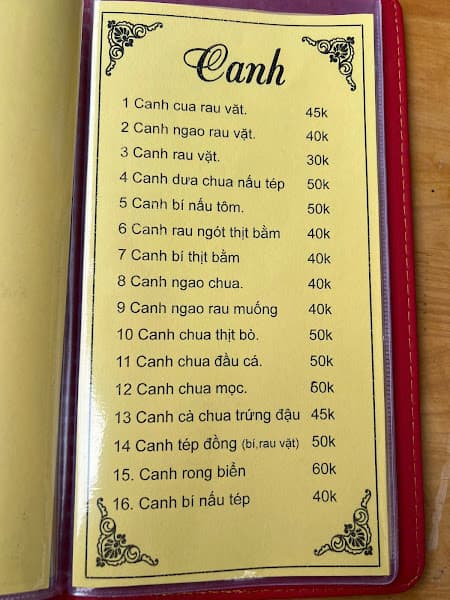 Canh
1 Canh cua rau vặt. 45k
2 Canh ngao rau vặt. 40k
3 Canh rau vặt. 30k
4 Canh dưa chua nấu tép 50k
5 Canh bí nấu tôm. 50k
6 Canh rau ngót thịt bằm 40k
7 Canh bí thịt bằm 40k
8 Canh ngao chua. 40k
9 Canh ngao rau muống 40k
10 Canh chua thịt bò. 50k
11 Canh chua đầu cá. 50k
12 Canh chua mọc. 50k
13 Canh cà chua trứng đậu 45k
14 Canh tép đồng (bí,rau vặt) 50k
15. Canh rong biển 60k
16. Canh bí nấu tép 40k